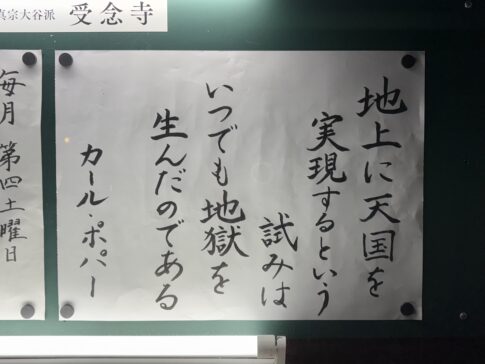 真宗大谷派 受念寺
地上に天国を
実現するという
試みは
いつでも地獄を
生んだのである
カール・ポパー
毎月 第四土曜日